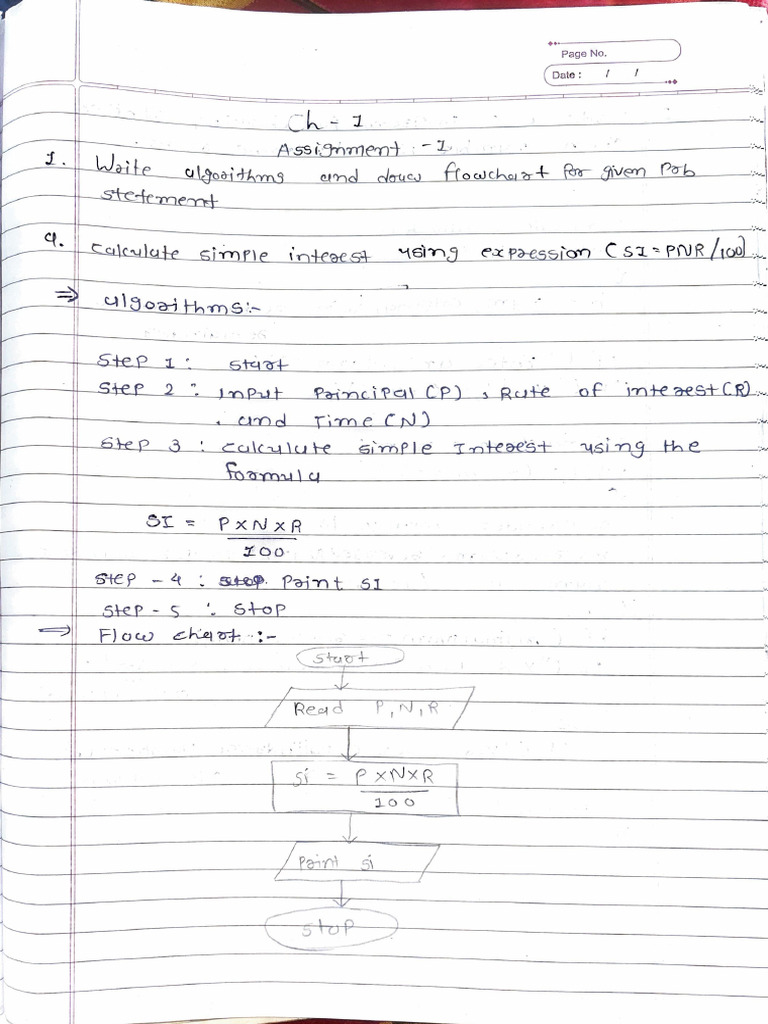 Page No.
Date : / /
Ch - 1
Assignment - 1
1. Write algorithms and draw flowchart for given Prb
stetement
a. calculate simple interest using expression (SI = PNR/100)
⇒ algorithms:-
Step 1 : start
Step 2 : Input Principal (P) , Rate of interest (R)
and Time (N)
Step 3 : calculate simple Interest using the
formula
SI = P × N × R
100
Step - 4 : Print SI
Step - 5 : Stop
⇒ Flow chart :-
start
Read P, N, R
si = P × N × R
100
Print si
stop